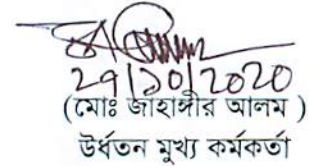 29/10/2020
(মোঃ জাহাঙ্গীর আলম )
উর্ধতন মুখ্য কর্মকর্তা